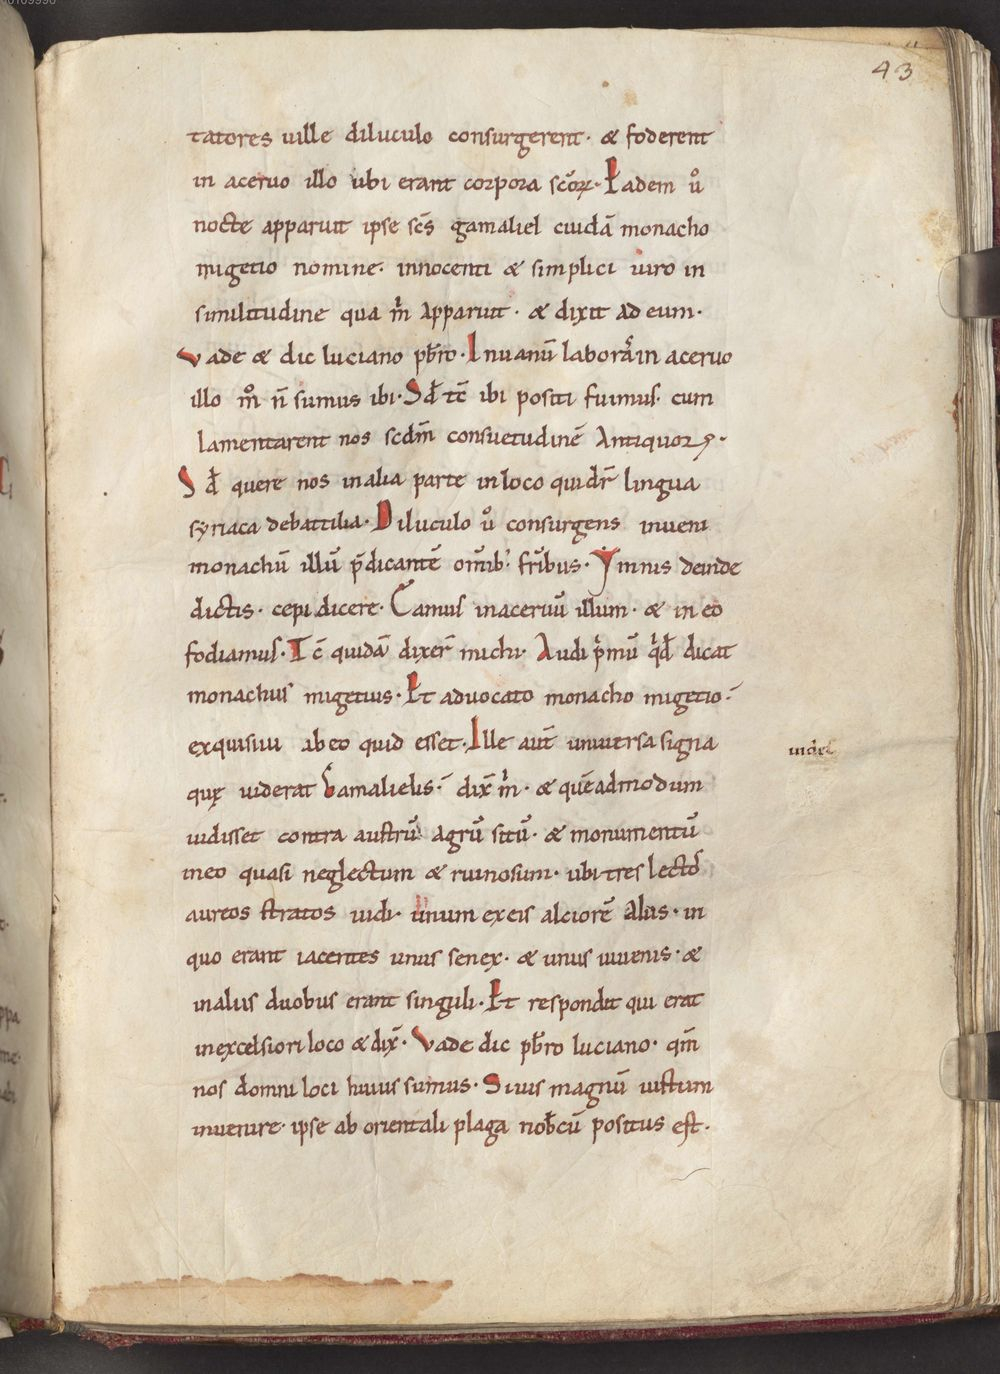 43
tatores uille diluculo consurgerent· & foderent
in aceruo illo ubi erant corpora scõꝝ· Eadem u̾o
nocte apparuit ipse scs̄ gamaliel cuidā monacho
migetio nomine· innocenti & simplici uiro in
similitudine qua m̄ apparuit· & dixit ad eum·
Vade & dic luciano pb̄ro· In uanū laborat̃ in aceruo
illo m̊ n̄ sumus ibi· Sꝫ tc̄ ibi positi fuimus· cum
lamentarent nos scdm̄ consuetudinē Antiquoꝝ·
Sꝫ quere nos in alia parte in loco qui dr̄ lingua
syriaca debatilia· Diluculo u̾o consurgens inueni
monachū illū p̄dicantē om̄ib; fr̄ibus· Ymnis deinde
dictis· cepi dicere· Eamus in aceruū illum· & in eo
fodiamus· Tc̄ quidā dixer̄ michi· Audi p̄mū qd̄ dicat
monachus migetius· Et aduocato monacho migetio·
exquisiui ab eo quid esset· Ille aut̄ uniuersa signa
quę uiderat Gamalielis· dix̄ m̄· & quēadmodum
uidisset contra austrū agrū sitū· & monumentū
meo quasi neglectum & ruinosum· ubi tres lectos
aureos stratos uidi· unum ex eis alciorē Aliis· in
quo erant iacentes unus senex· & unus iuuenis· &
in aliis duobus erant singuli· Et respondit qui erat
in excelsiori loco & dix̄· Vade dic pb̄ro luciano· qm̄
nos domni loci huius sumus· Si uis magnū iustum
inuenire· ipse ab orientali plaga nob̄cū positus est·